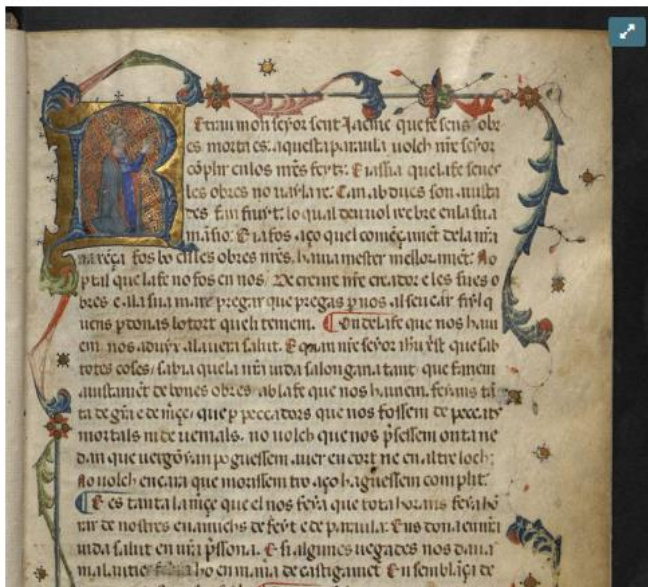 Retrau mon seyor sent Jacme que fe sens obr
es morta es: aquesta paraula uolch nr̄e seyor
cōplir en los nr̄es feyts: E ia sia que la fe senes
les obres no uayla re: Can abdues son aiusta
des fan fruyt: lo qual deu uol reebre en la sua
masio: E ia fos aço quel començamēt de la nr̄a
naxēça fos bo en les obres nr̄es, hauia mester mellorāmēt: No
p tal que la fe no fos en nos, De creure nr̄e creador e les sues o
bres e a la sua mare pregar que pregas p nos al seu car fiyl q
uens pdonas lo tort queli teniem. On de la fe que nos hauí
em nos aduyx a la uera salut. E quan nr̄e seyor ihū xst que sab
totes coses, sabia que la nr̄a uida salongaria tant que fariem
aiustamēt de bones obres ab la fe que nos hauiem, feyans tā
ta de gr̄a e de mr̄çe, que p peccadors que nos fossem de peccats
mortals ni de uenials, no uolch que nos presessem onta ne
dan que uergoyan poguessem auer en cort ne en altre loch:
No uolch encara que morissem tro aço haguessem complit.
E es tanta la mr̄çe que el nos feya que tota hora ns feya hō
rar de nostres enamichs de feyt e de paraula: E ns donaua en nr̄a
uida salut en nr̄a pssona. E si algunes uegades nos daua
malauties ho en maña de castigamēt En semblāça de